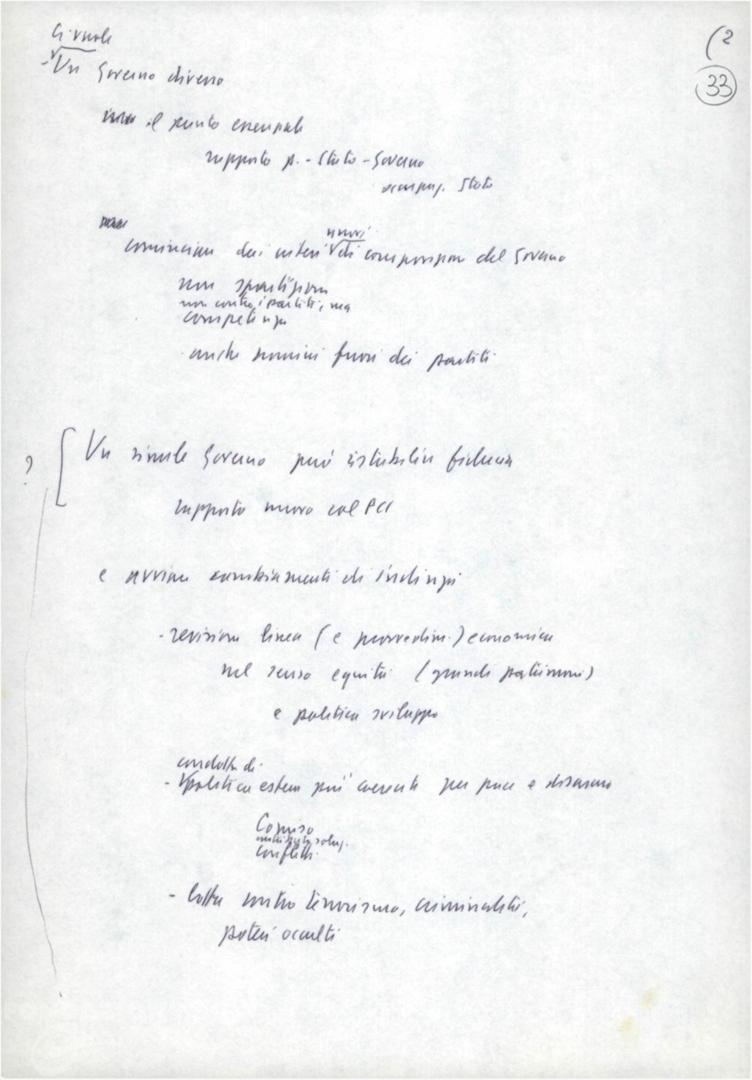 Ci vuole
(2
33
- Un Governo diverso
il punto essenziale
rapporto p. - Stato - Governo
occupaz. Stato
nuovi
cominciare dai criteri di composizione del Governo
non spartizione
non contro i partiti, ma
competenza
anche uomini fuori dei partiti
? Un simile Governo può ristabilire fiducia
rapporto nuovo col PCI
e avviare cambiamenti di indirizzi
- revisione linea (e provvedim.) economica
nel senso equità (grandi patrimoni)
e politica sviluppo
condotta di
- politica estera più coerente per pace e disarmo
Comiso
conflitti
- lotta contro terrorismo, criminalità,
poteri occulti